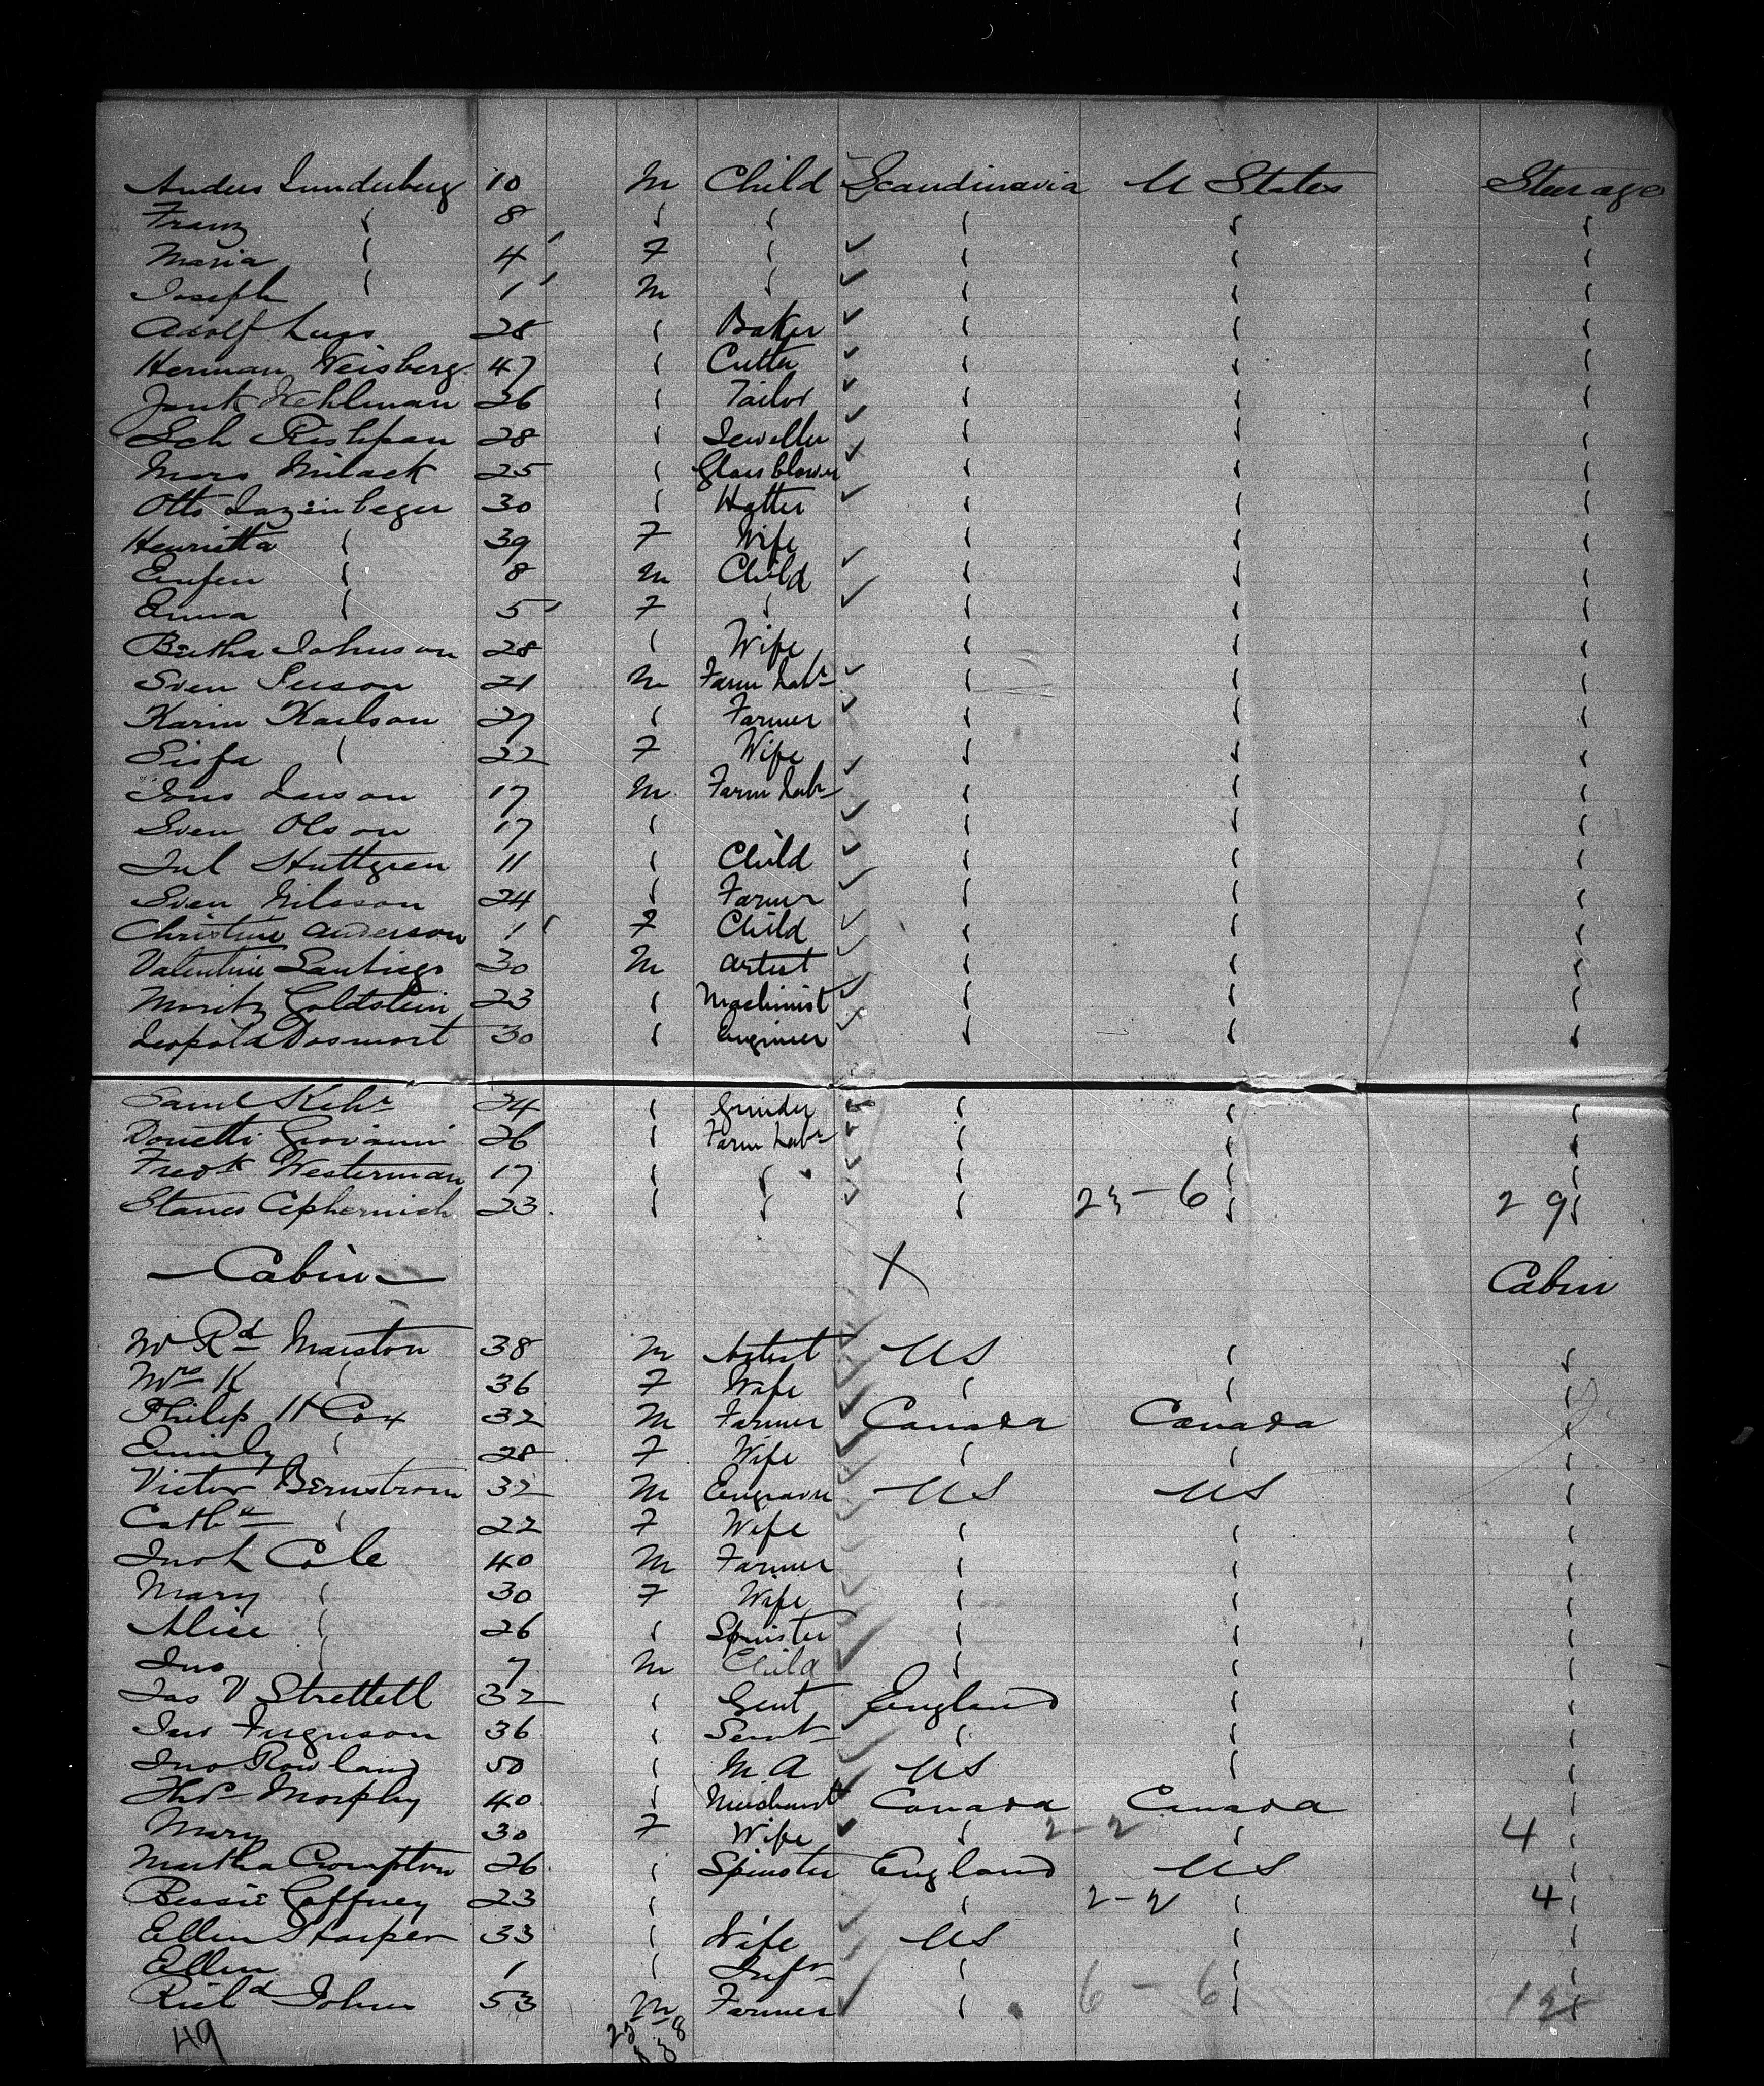 Anders Lunderberg 10 M Child Scandinavia U States Steerage
Franz " 8 " " " " "
Maria " 4 F " " " "
Joseph " 1 M " " " "
Adolf 28 " Baker " " "
Herman Weisberg 47 " Cutter " " "
Kehlman 26 " Tailor " " "
28 " Jeweller " " "
Milack 25 " Glass blower " " "
Otto 30 " Hatter " " "
Henrietta " 39 F Wife " " "
8 M Child " " "
Emma " 5 F " " " "
Bertha Johnson 28 " Wife " " "
Sven 21 M Farm Labr " " "
Karin Karlson 27 " Farmer " " "
" 22 F Wife " " "
Jons Larson 17 M Farm Labr " " "
Sven Olson 17 " " " "
Jul Huttgren 11 " Child " " "
Sven Nilsson 24 " Farmer " " "
Christine Anderson 1 F Child " " "
Valentine 30 M Artist " " "
Moritz Goldstein 23 " Machinist " " "
Leopold Dosmort 30 " Engineer " " "
Saml Kehr 34 " Grinder " " "
Donetti Giovanni 26 " Farm Labr " " "
Fredk Westerman 17 " " " " "
23 " " " 23-6 " 29 "
Cabin X Cabin
Mr Rd Marston 38 M Artist US " "
Mrs K " 36 F Wife " " "
Philip H Cox 32 M Farmer Canada Canada "
Emily " 28 F Wife " " "
Victor Bernstrom 32 M Engraver US US "
Cathe " 22 F Wife " " "
Jno L Cole 40 M Farmer " " "
Mary " 30 F Wife " " "
Alice " 26 " Spinster " " "
Jno " 7 M Child " " "
Jas V Strettell 32 " Gent England " "
Jno Ferguson 36 " Servt " " "
Jno Rowland 50 " M A US " "
Thos Morphy 40 " Merchant Canada Canada "
Mary 30 F Wife " 2-2 " 4 "
Martha Crompton 26 " Spinster England US "
Bessie Gaffney 23 " " 2-2 " 4 "
Ellen Harper 33 " Wife US " "
Ellen 1 " Inft " " "
Richd Johns 53 M Farmer " 6-6 " 12 "
49